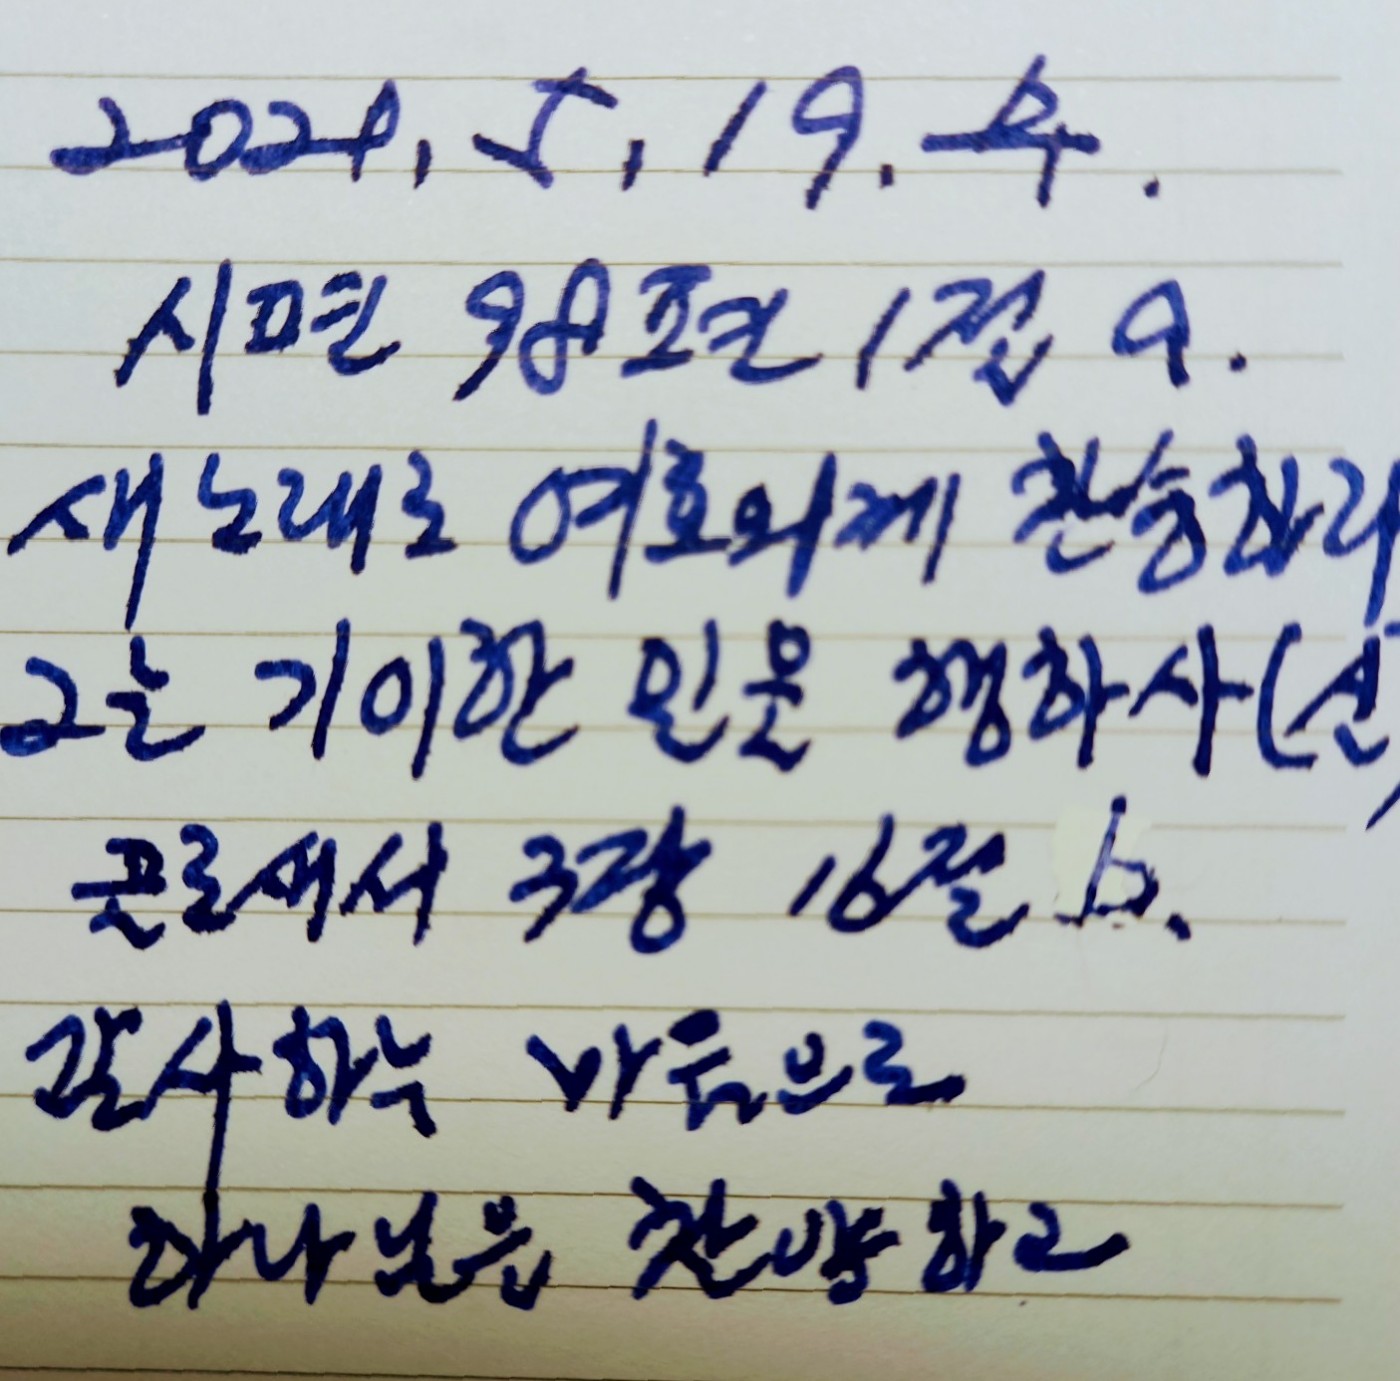 2021. 5. 19. 수.
시편 98편 1절 a.
새 노래로 여호와께 찬송하라
그는 기이한 일을 행하사 (신
골로새서 3장 16절 b.
감사하는 마음으로
하나님을 찬양하고